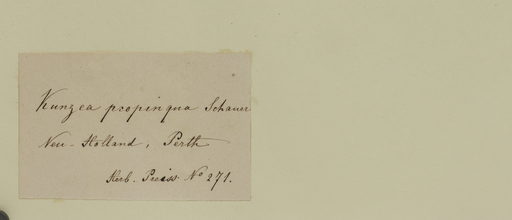 Kunzea propinqua Schauer
Neu-Holland, Perth
Herb. Preiss. No 271.